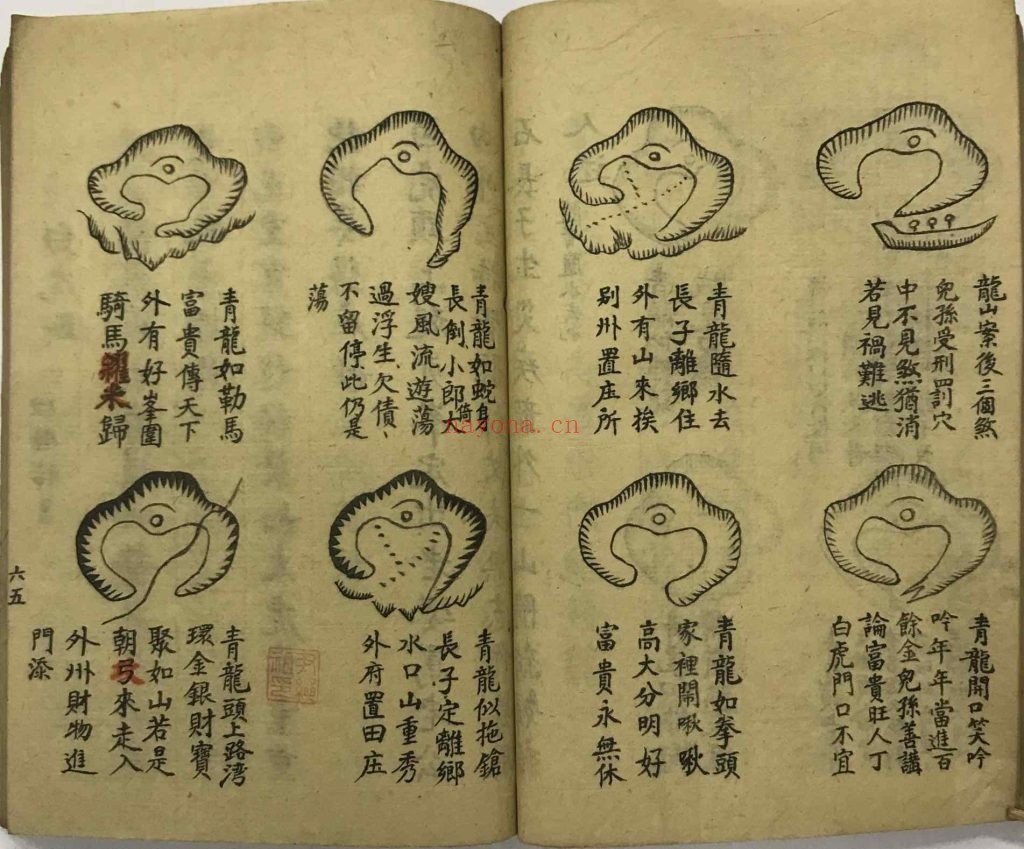 龍山案後三個煞
兒孫受刑罰穴
中不見煞猶消
若見禍難逃
青龍隨水去
長子離鄉住
外有山來挨
別州置庄所
青龍開口笑吟
吟年年當進百
餘金兒孫善講
論富貴旺人丁
白虎門口不宜
青龍如拳頭
家裡鬧啾啾
高大分明好
富貴永無休
青龍如蛇身
長倒小郎倚大
嫂風流遊蕩
過浮生欠債
不留停此仍是
蕩
青龍如勒馬
富貴傳天下
外有好峯圍
騎馬朱歸
青龍似拖鎗
長子定離鄉
水口山重秀
外府置田庄
青龍頭上路湾
環金銀財寶
聚如山若是
朝弓來走入
外州財物進
門添
六五
nayona.cn